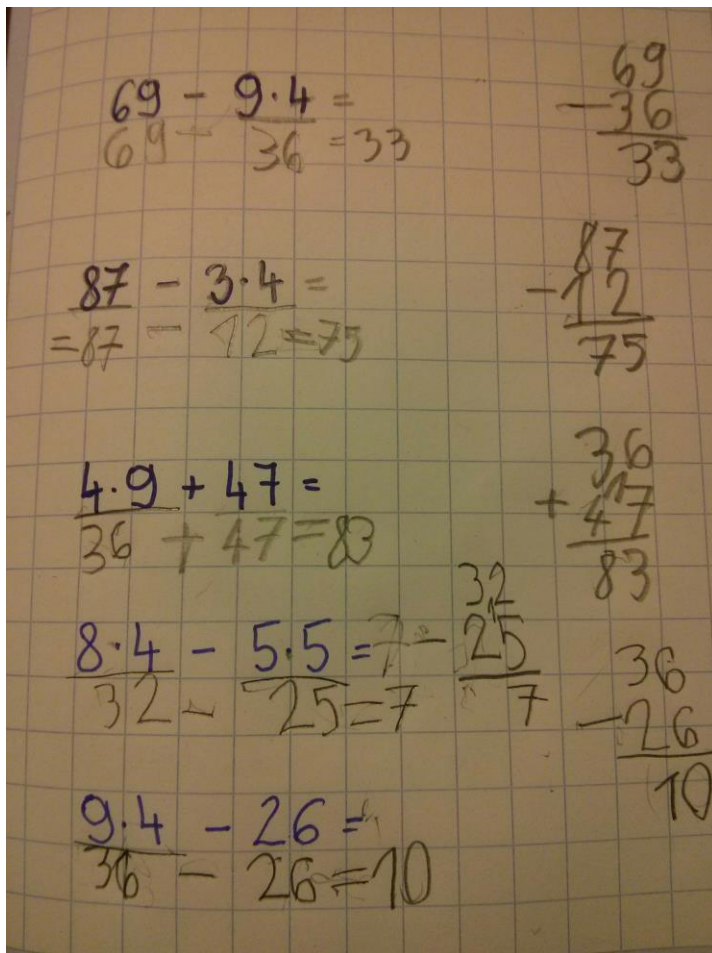 69 - 9·4 =
69 - 36 = 33
69
- 36
33
87 - 3·4 =
= 87 - 12 = 75
87
- 12
75
4·9 + 47 =
36 + 47 = 83
36
+ 47
1
83
8·4 - 5·5 = 7
32 - 25 = 7
32
- 25
1
7
9·4 - 26 =
36 - 26 = 10
36
- 26
10